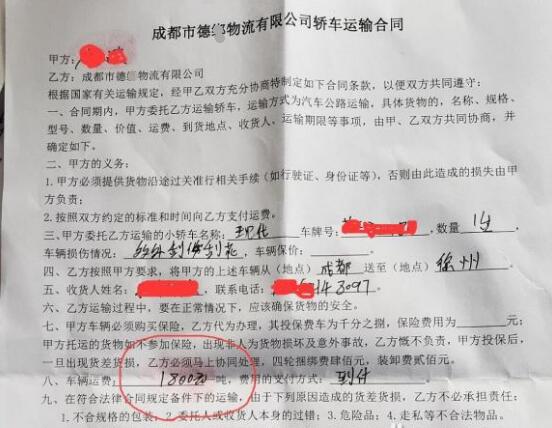 成都市德 物流有限公司轿车运输合同
甲方:
乙方:成都市德 物流有限公司
根据国家有关运输规定,经甲乙双方充分协商特制定如下合同条款,以便双方共同遵守:
一、合同期内,甲方委托乙方运输轿车,运输方式为汽车公路运输,具体货物的,名称、规格、
型号、数量、价值、运费、到货地点、收货人,运输期限等事项,由甲、乙双方共同协商,并
确定如下。
二、甲方的义务:
1.甲方必须提供货物沿途过关准行相关手续(如行驶证、身份证等),否则由此造成的损失由甲
方负责;
2.按照双方约定的标准和时间向乙方支付运费。
三、甲方委托乙方运输的小轿车名称:现代 车牌号: ,数量 1台
车辆损伤情况: 车辆保价:
四、乙方按照甲方要求,将甲方的上述车辆从(地点)成都 送至(地点)徐州
五、收货人姓名: 、联系电话: 148097.
六、乙方运输过程中,要在正常情况下,应该确保货物的安全。
七、甲方车辆必须购买保险,乙方代为办理,其投保费车为千分之捌,保险费用为 元;
甲方托运的货物如不参加保险,出现非人为货物损坏及意外事故,乙方慨不负责,甲方投保后,
一旦出现货差货损,乙方必须马上协同处理,四轮捆绑费肆佰元,装卸费贰佰元。
八、车辆运费: 1800元 吨,费用的支付方式: 到付
九、在符合法律合同规定备件下的运输,由于下列原因造成的货差货损,乙方不必承担责任:
1.不合规格的包装;2.委托人或收货人本身的过错;3.危险品;4.走私等不合法物品。